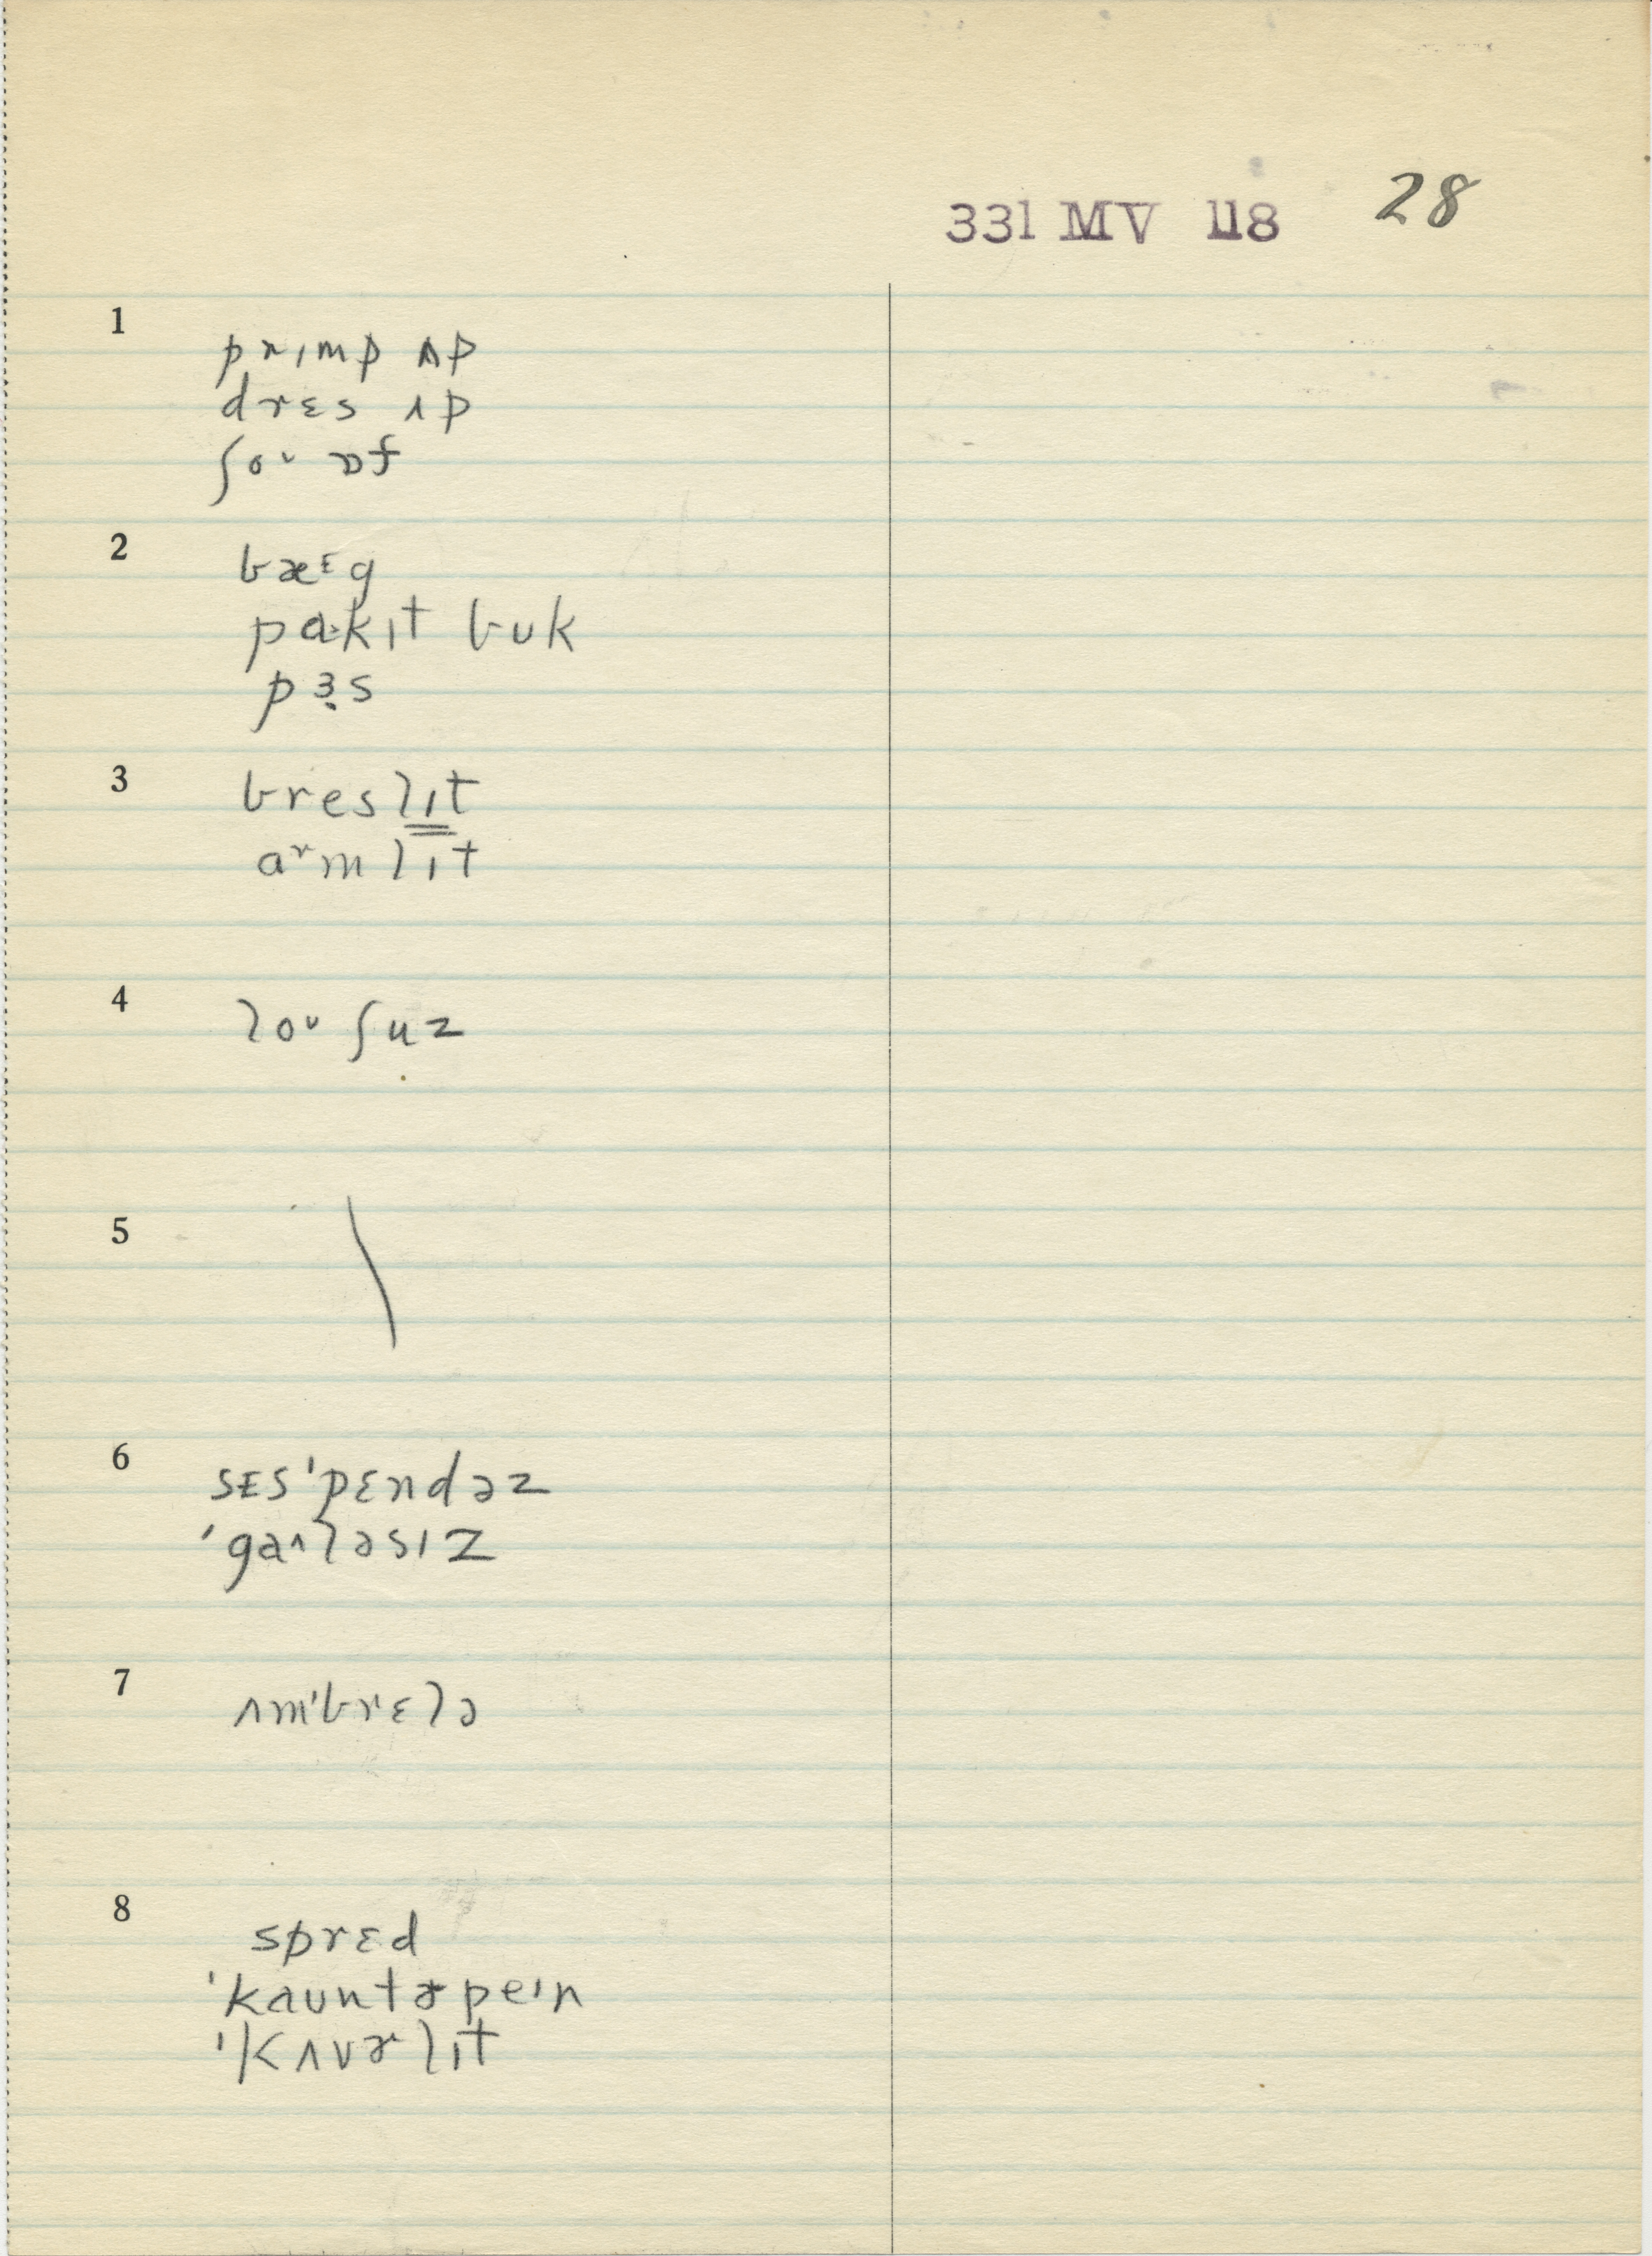 331 MV 118 28
1
prɪmp ʌp
drɛs ʌp
ʃoᴜ ɒf
2
bæᵋg
pɑ˃kɪt bᴜk
pɜ̣s
3
breslɪt
aʳmlɪt
4
loᴜ ʃuz
5
6
sɛs'pɛndəz
'gaʌləsɪz
7
ʌm'brɛlə
8
sprɛd
'kaᴜntɚpeɪn
'kʌvɚlɪt